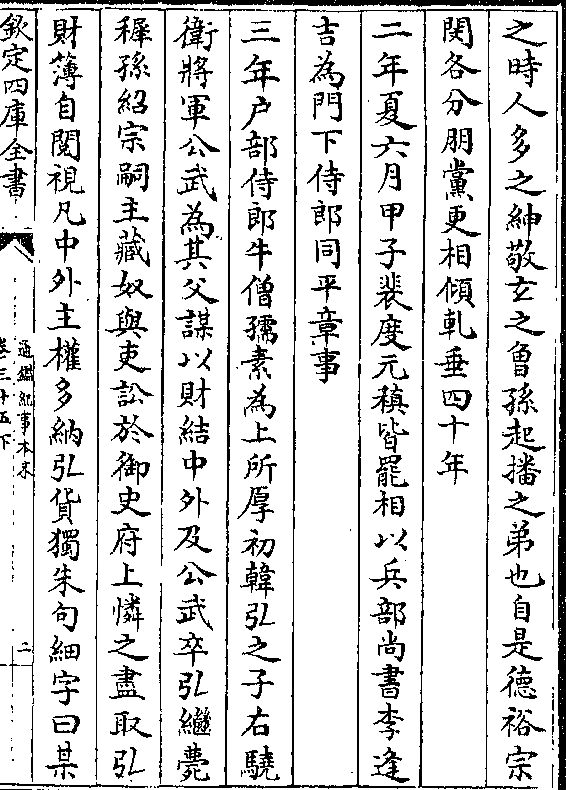 之時人多之紳敬玄之曾孫起播之弟也自是德裕宗
閔各分朋黨更相傾軋垂四十年
二年夏六月甲子裴度元稹皆罷相以兵部尚書李逢
吉為門下侍郎同平章事
三年户部侍郎牛僧孺素為上所厚初韓弘之子右驍
衛將軍公武為其父謀以財結中外及公武卒弘繼薨
穉孫紹宗嗣主藏奴與吏訟於御史府上憐之盡取弘
財薄自閲視凡中外主權多納弘貨獨朱句細字曰某
欽定四庫全書
通鑑紀事本末
卷三十五下
二